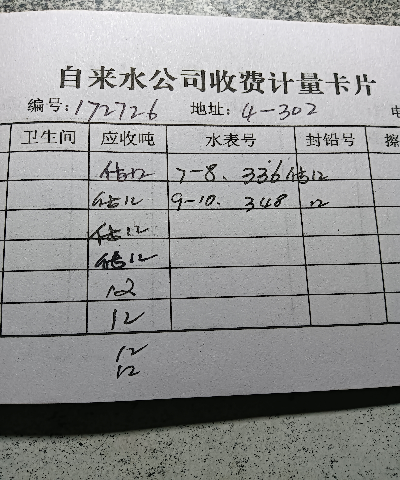 自来水公司收费计量卡片
编号:172726 地址:4-302
卫生间 应收吨 水表号 封铅号
估12 7-8. 336 估12
估12 9-10. 348 12
估12
估12
12
12
12
12